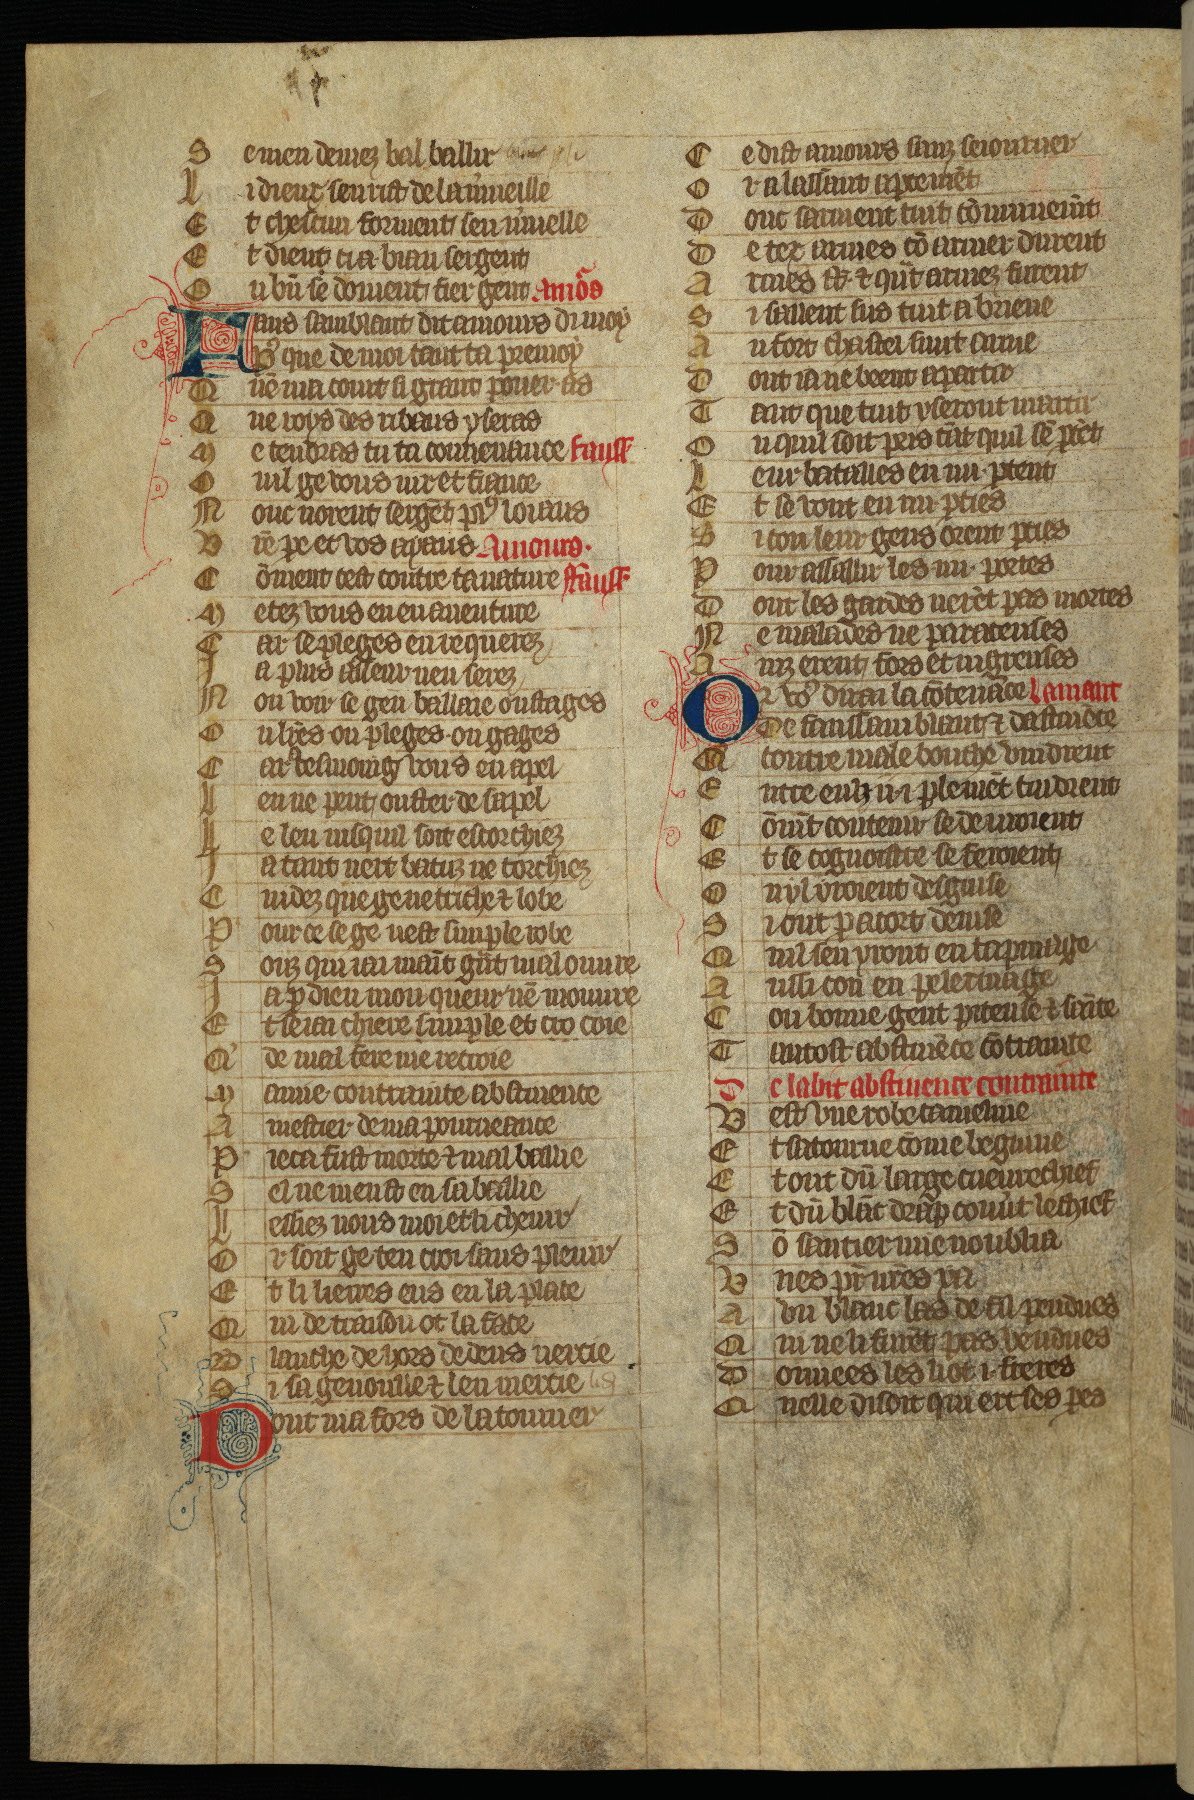 S e men devez bal baillir
L i dieux sen rist de la mueille
E t chescun forment sen muelle
E t dient ci a biau sergent
O u bñ se doivent fier gent Amōs
F aus samblant dit amours di moy
P9 que de moi tant ta premoy
Q uē ma court si grant pouer as
Q ue roys des ribaus y seras
M e tendras tu ta convenance Fauss
O uil ge vous iur et fiance
N onc norent sergēt pl9 loiaus
V rē pe et vos ayaus Amours.
C ōment cest contre ta nature Fauss
M etez vous en en aventure
C ar se pleges en requerez
J a plus asseur nen serez
N on voir se gen baillaie oustages
O u lr̄es ou pleges ou gages
C ar tesmoing vous en apel
L en ne peut ouster de sa pel
L e leu iusquil soit escorchiez
J a tant nert batuz ne torchiez
C uidez que ge ne triche & lobe
P our ce se ge vest simple robe
S ouz qui iai maīt gāt mal ouvre
J a p dieu mon queur nē mouvre
E t se iai chiere simple et coie
Q' de mal fere me recroie
M amie contrainte abstinente
A mestier de ma pourveance
P ieca fust morte & mal baillie
S el ne meust en sa baillie
L essiez nous moi et li chevir
O r soit ge ten croi sans pleuir
E t li lierres ens en la place
Q ui de traison ot la face
B lanche dehors dedens nercie
S i sagenouille & len mercie
D ont na fors de latourner
C e dist amours sanz seiourner
O r a lassaut apremēt
D onc sarment tuit cōmunemt
D e tex armes cō armer durent
A rmes st & qnt armez furent
S i sallent sus tuit abrieue
A u fort chastel sunt arrive
D ont ia ne beent a partir
T ant que tuit y seront martir
O u quil soit pris ait quil sē pt
L eur batailles en iiii ptent
E t se vont en iiii pties
S i con leur gens orent pties
P our assaillir les iiii portes
D ont les gardes nerēt pas mortes
N e malades ne pareceuses
A inz erent fors et vigreuses
O r vo9 dirai la cōtenāce Lamant
De faussamblant & dastinēce
Q contre male bouche vindrent
E ntre eulz ii i plemēt tindrent
C ōmt contenir se devroient
E t se cognoistre se feroient
O u yl vroient desguise
S i ont p acort devise
Q uil sen yront en tapinage
A ussi con en pelerinage
C on bonne gent piteuse & sāite
T antost abstinēce cōtrainte
D e labit abstinence contrainte
V est vne robe cameline
E t satourne cōme beguine
E t ont dū large cueurechief
E t dū blāc drap couut le chief
S ō sautier mie noublia
V nes pr̄ nr̄es pñ
A un blanc las de fil pendues
Q ui ne li furēt pas vendues
D onnees les liot i freres
Q uelle disoit qui ert ses pes